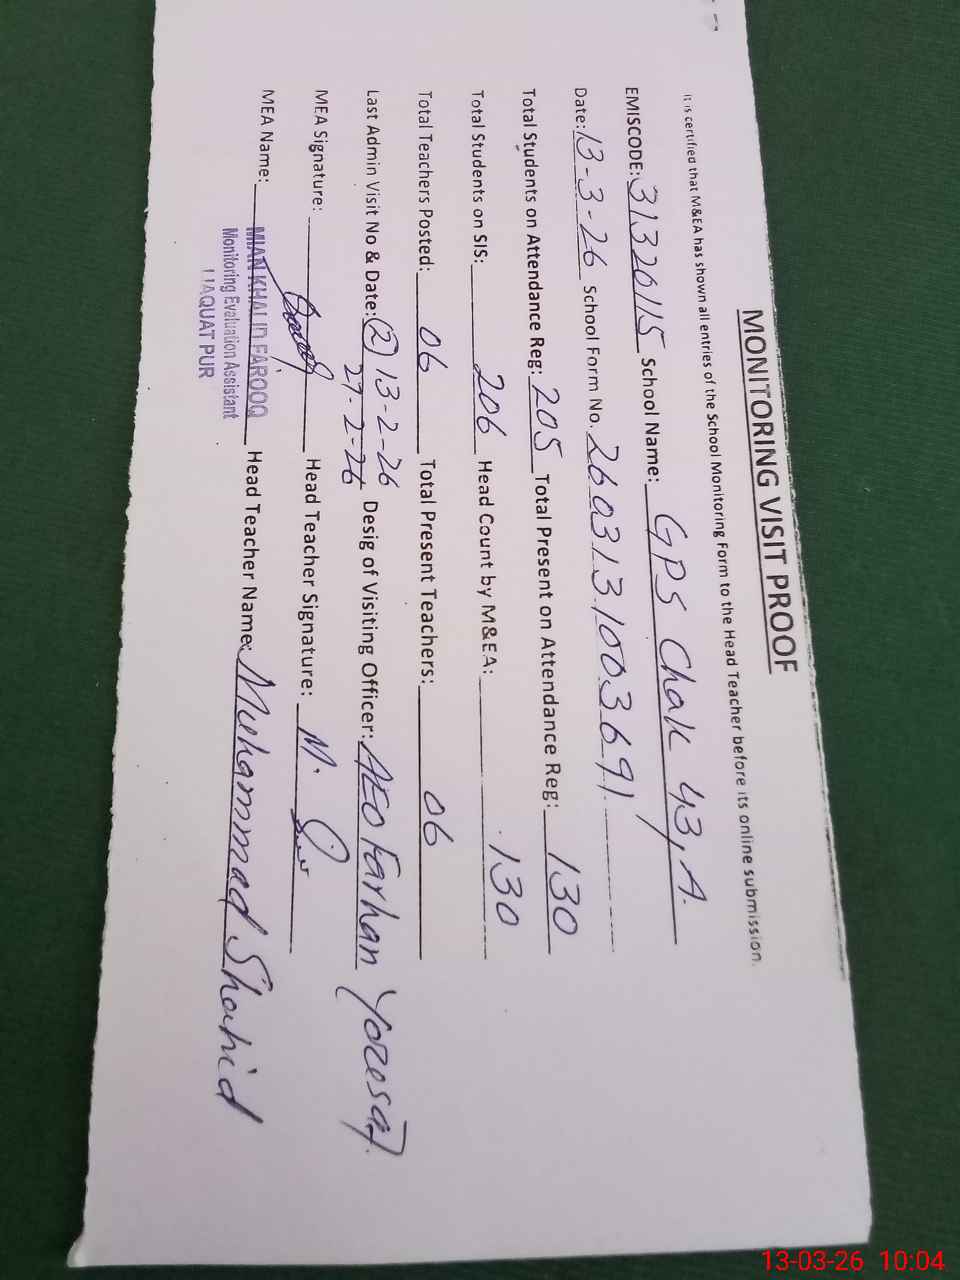 MONITORING VISIT PROOF
It is certified that M&EA has shown all entries of the School Monitoring Form to the Head Teacher before its online submission.
EMISCODE: 31320115 School Name: GPS Chak 43, A.
Date: 13-3-26 School Form No. 26031310036 91
Total Students on Attendance Reg: 205 Total Present on Attendance Reg: 130
Total Students on SIS: 206 Head Count by M&EA: 130
Total Teachers Posted: 06 Total Present Teachers: 06
Last Admin Visit No & Date: (2) 13-2-26 Desig of Visiting Officer: AEO Farhan
27-2-26
MEA Signature: Head Teacher Signature: M.
MEA Name: MIAN KHALID FAROOQ Head Teacher Name: Muhammad Shahid
Monitoring Evaluation Assistant
LIAQUAT PUR
13-03-26 10:04